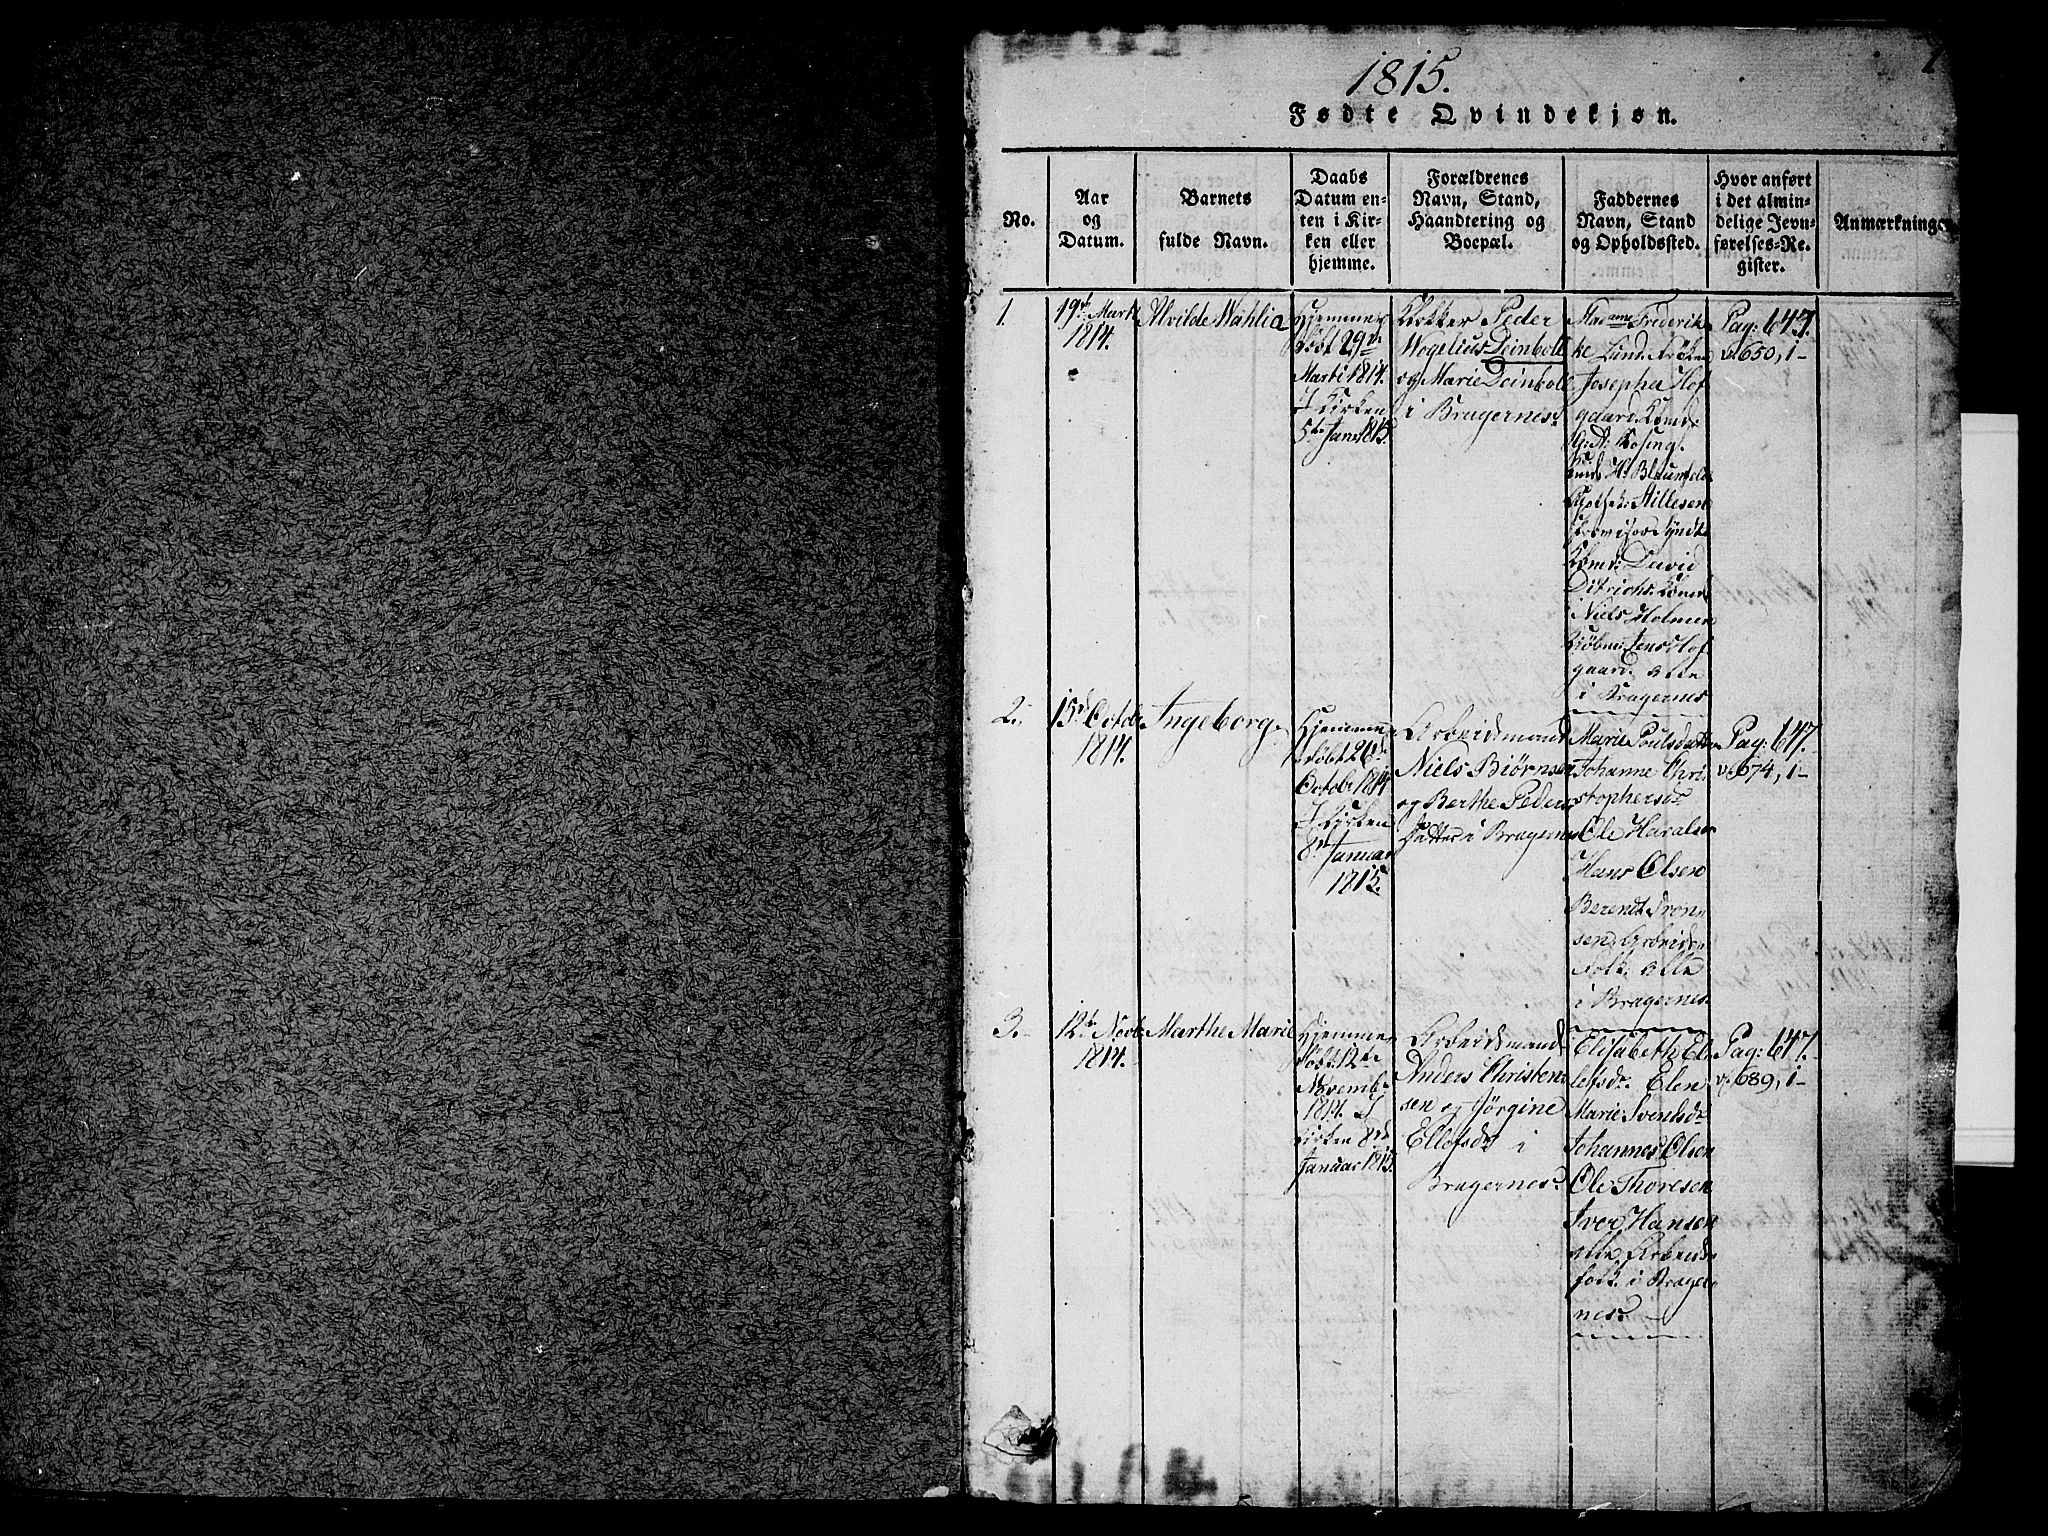 1
1815.
Fødte Qvindekjøn.
No.
Aar
og
Datum.
Barnets
fulde Navn.
Daabs
Datum en-
ten i Kir-
ken eller
hjemme.
Forældrenes
Navn, Stand,
Haandtering og
Boepæl.
Faddernes
Navn, Stand
og Opholdssted.
Hvor anført
i det almin-
delige Jevn-
førelses-Re-
gister.
Anmærkninge
1.
19de Marti
1814.
Alvilde Mahlia
Hjemme
døbt 29de
Marti 1814.
I Kirken
5te Jan: 1815.
Klokker Peder
Wogelius Deinboll
og Marie Deinboll
i Bragernes.
Madame Frederik-
ke Lund. Frøken
Josepha Hof
gaard. Kbmd:
Niels Holmer
Jens Hof
gaard. alle
i Bragernes
Pag: 647.
v. 650, 1-
2.
15d Octobr
1814.
Ingeborg
Hjemme
døbt 26de
Octobr 1814
I Kirken
8de Januar
1815.
Arbeidsmand
Niels Biørnsen
og Berthe Peders
datter i Bragernes
Marie Poulsdatter
Johanne Chri-
stophersdr
Ole Haralsen
Hans Olsen
Berendt Aron-
sen, Arbeids-
Folk. alle
i Bragernes
Pag: 647.
v. 674, 1-
3.
12te Novbr
1814.
Marthe Marie
Hjemme
døbt 12te
Novemb:
1814. I
Kirken 8de
Januar 1815.
Arbeidsmand
Anders Christen-
sen og Jørgine
Ellefsdr i
Bragernes.
Elisabeth El-
lefsdr. Elen
Marie Svendsdr
Johannes Olsen
Ole Thoresen
Iver Hansen
alle Arbeids-
folk i Brager-
nes
Pag: 647.
v. 689, 1-